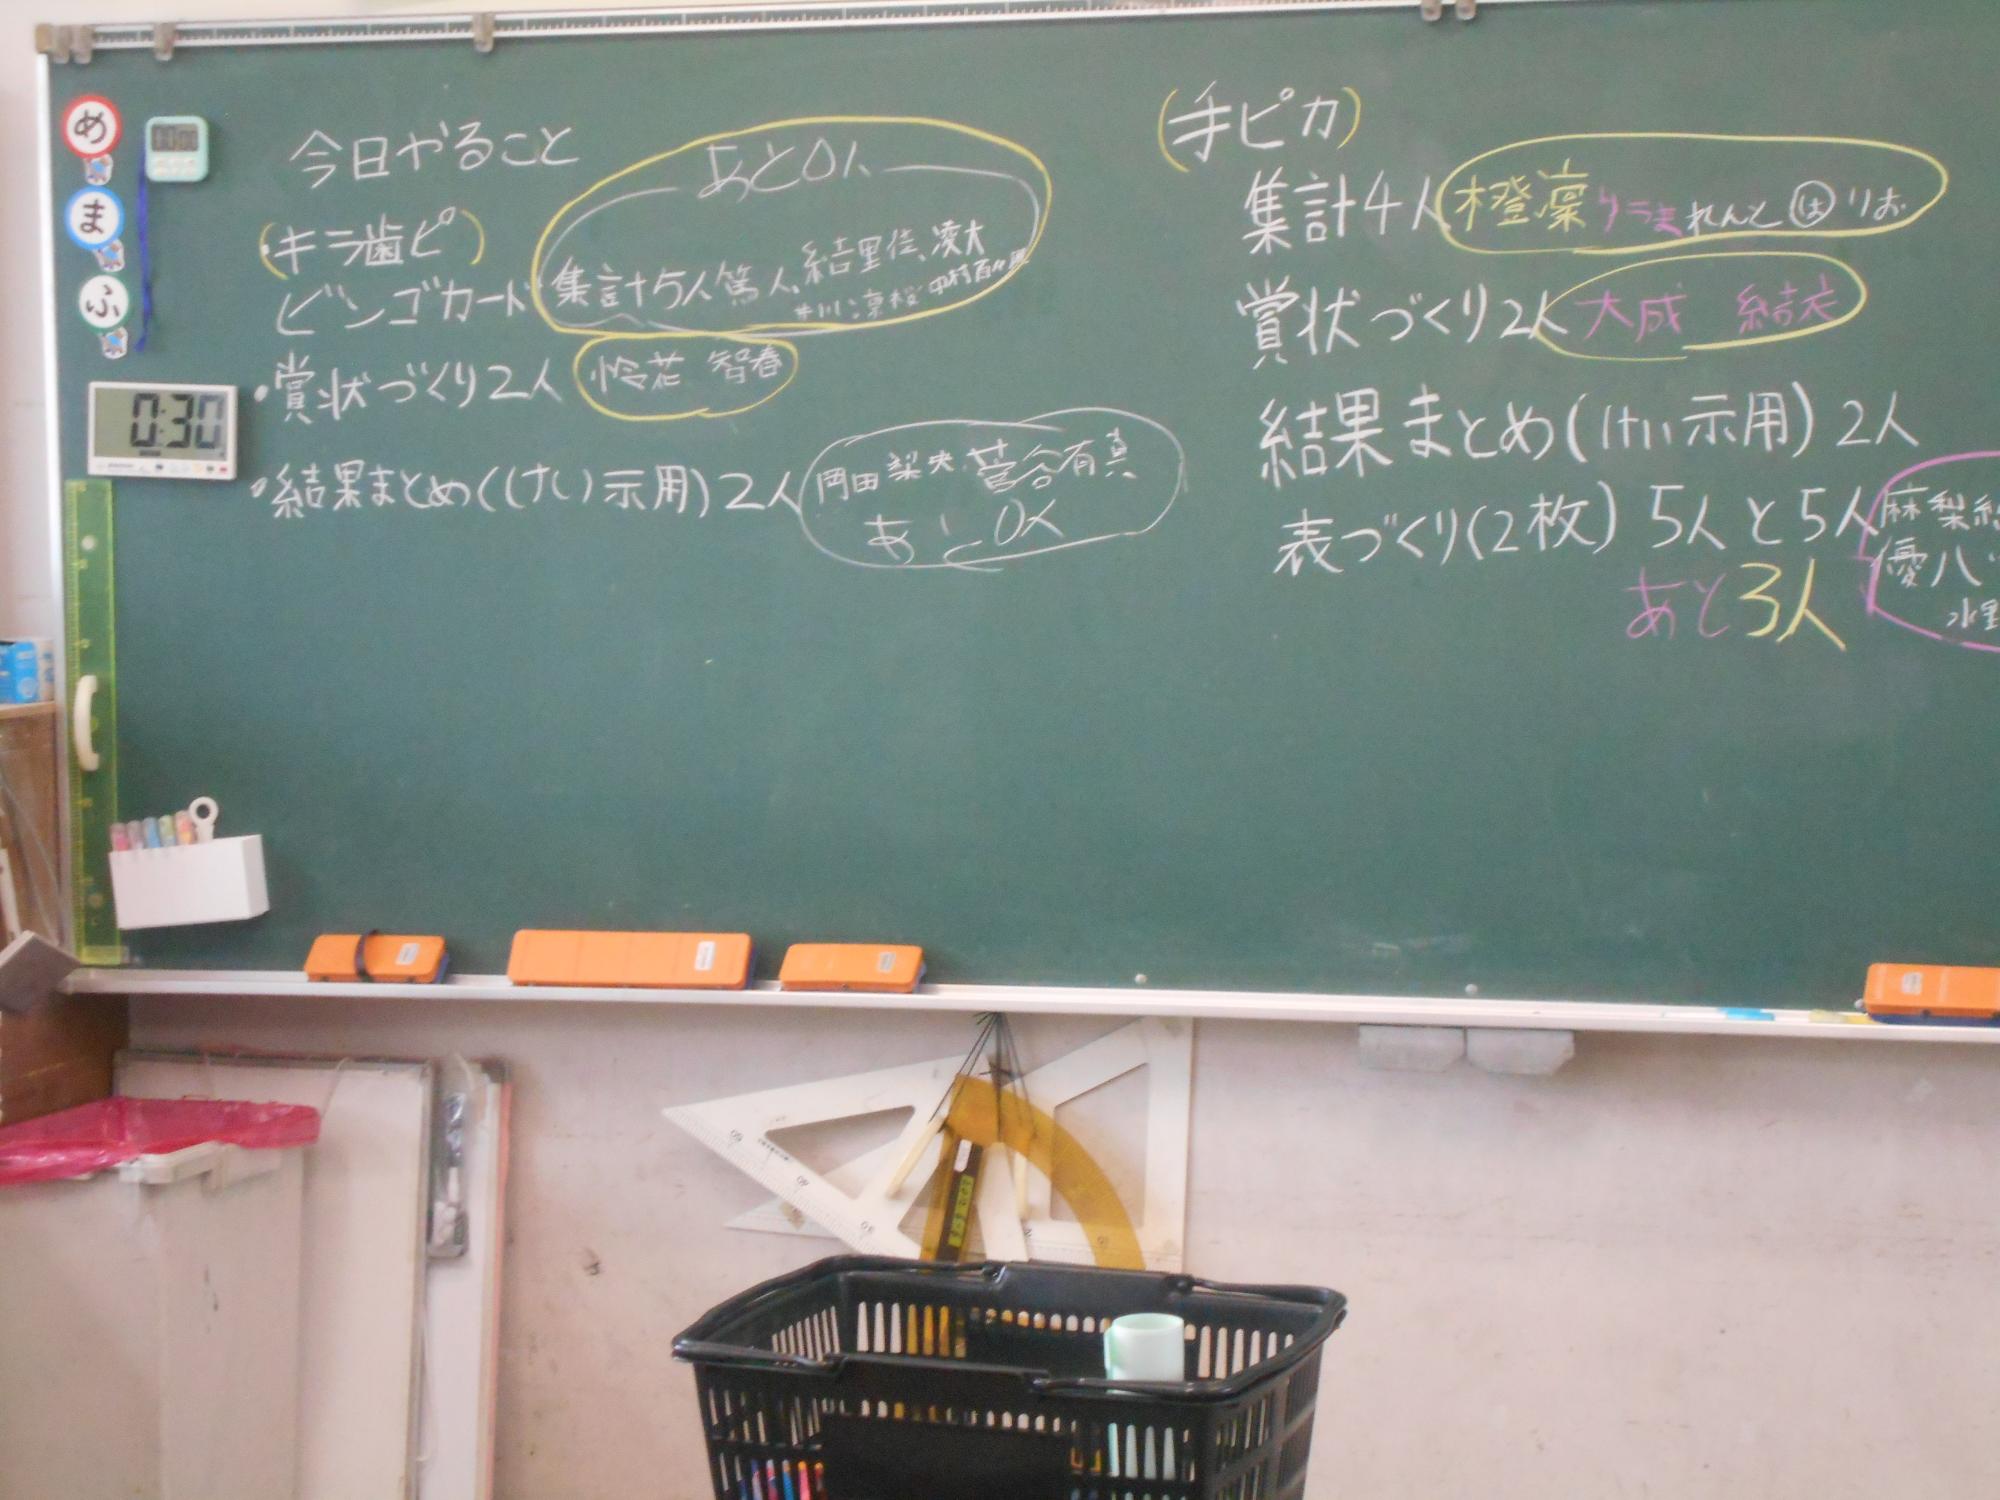 め
ま
ふ
0:30
今日やること
(キラ歯ピ)
あと0人
ビンゴカード 集計5人 篤人、結里佳、凌大
賞状づくり2人 怜花 智春
結果まとめ(けい示用)2人 岡田梨央 菅谷有真
あと0人
(手ピカ)
集計4人 橙凛 りうま れんと は りお
賞状づくり2人 大成 結衣
結果まとめ(けい示用)2人
表づくり(2枚) 5人と5人 麻梨
優
あと3人